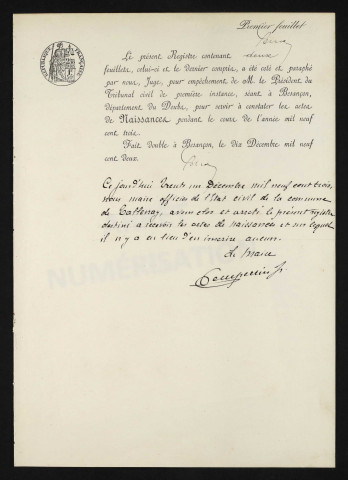 Premier feuillet
Le présent Registre contenant deux
feuillets, celui-ci et le dernier compris, a été coté et paraphé
par nous, Juge, pour empêchement de M. le Président du
Tribunal civil de première instance, séant à Besançon,
département du Doubs, pour servir à constater les actes
de Naissances pendant le cours de l'année mil neuf
cent trois.
Fait double à Besançon, le dix Décembre mil neuf
cent deux.
Ce jourd'hui trente un Décembre mil neuf cent trois,
Nous maire officier de l'Etat civil de la commune
de avons clos et arrêté le présent registre
destiné à recevoir les actes de naissances et sur lequel
il n'y a eu lieu d'en inscrire aucun.
Le maire
NUMÉRISATION